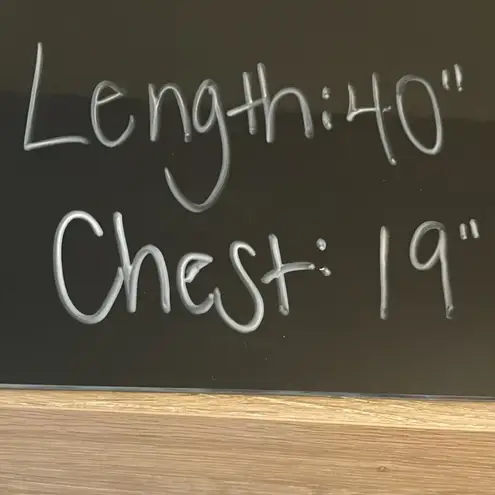 Length: 40"
Chest: 19"